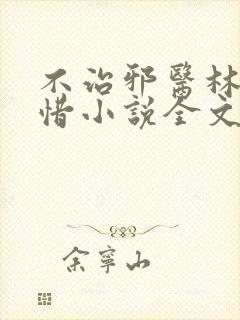 不治邪醫林
惜小說全文
余寧山